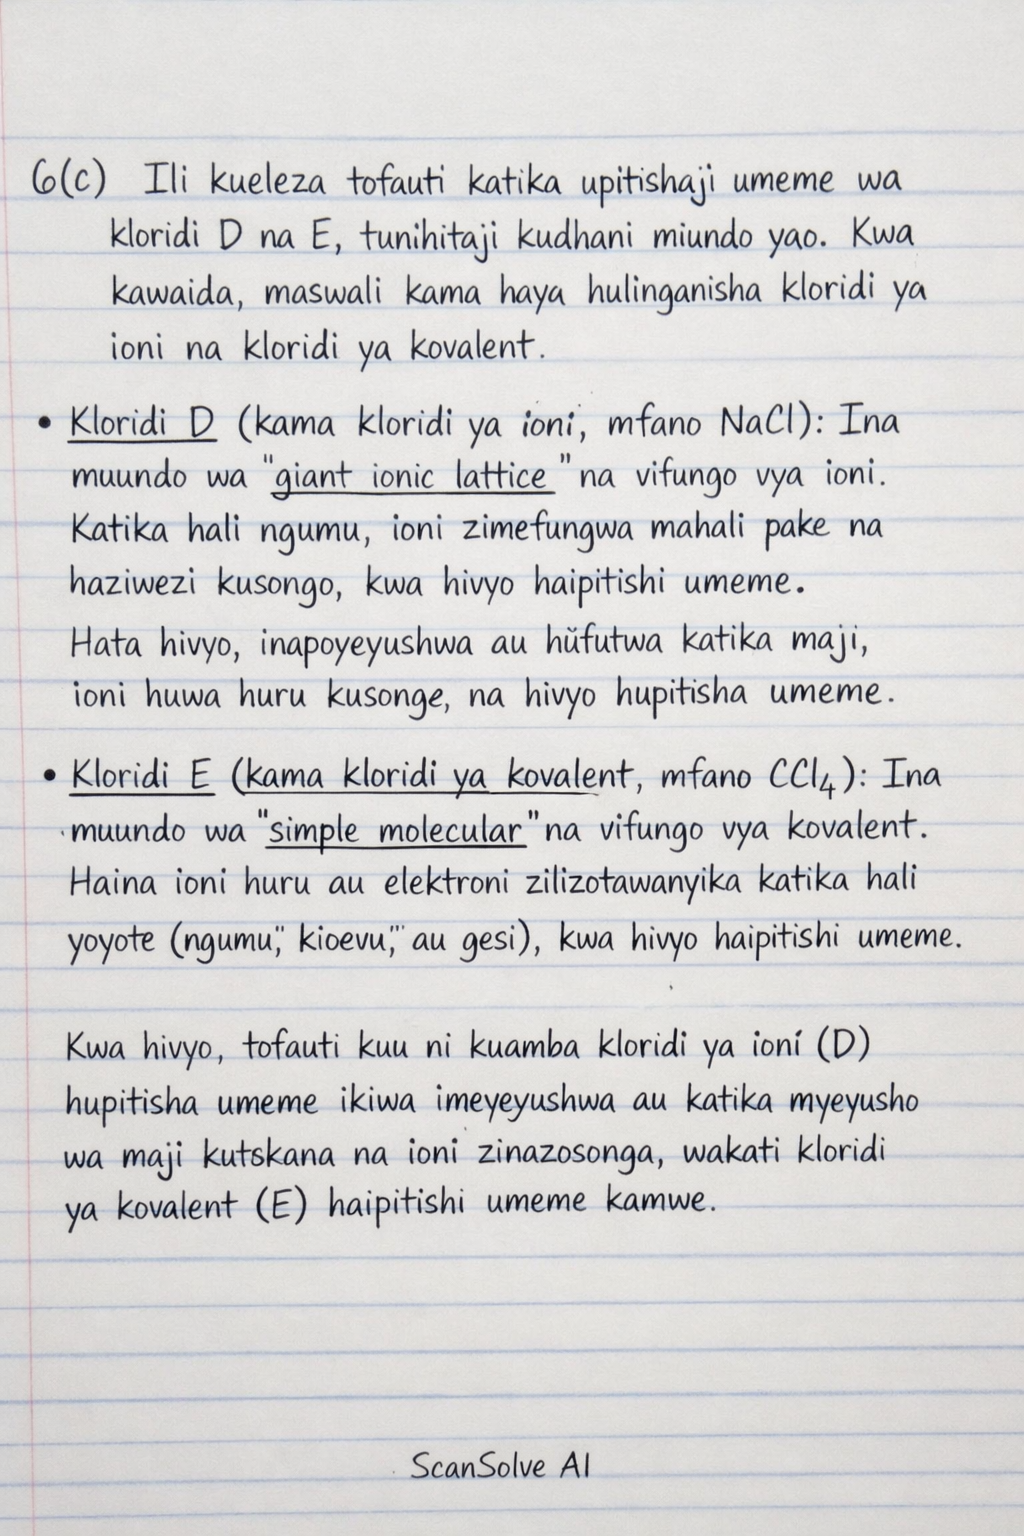 6(c) Ili kueleza tofauti katika upitishaji umeme wa
kloridi D na E, tunihitaji kudhani miundo yao. Kwa
kawaida, maswali kama haya hulinganisha kloridi ya
ioni na kloridi ya kovalent.
• Kloridi D (kama kloridi ya ioni, mfano NaCl): Ina
muundo wa "giant ionic lattice" na vifungo vya ioni.
Katika hali ngumu, ioni zimefungwa mahali pake na
haziwezi kusongo, kwa hivyo haipitishi umeme.
Hata hivyo, inapoyeyushwa au hŭfutwa katika maji,
ioni huwa huru kusonge, na hivyo hupitisha umeme.
• Kloridi E (kama kloridi ya kovalent, mfano CCl₄): Ina
muundo wa "simple molecular" na vifungo vya kovalent.
Haina ioni huru au elektroni zilizotawanyika katika hali
yoyote (ngumu," kioevu," au gesi), kwa hivyo haipitishi umeme.
Kwa hivyo, tofauti kuu ni kuamba kloridi ya ioni (D)
hupitisha umeme ikiwa imeyeyushwa au katika myeyusho
wa maji kutskana na ioni zinazosonga, wakati kloridi
ya kovalent (E) haipitishi umeme kamwe.
ScanSolve AI